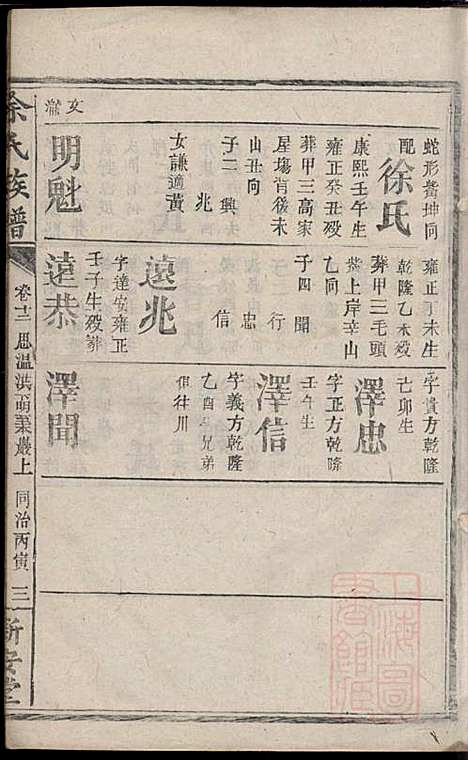 蛇形螯坤向
配徐氏
康熙壬午生
雍正癸丑殁
葬甲三高家
星塲背後未
山丑向
子二 興
兆
女謙適黃
明魁
文
雍正丁未生
乾隆乙未殁
葬甲三毛頭
紫上岸辛山
乙向
子四 聞
行
忠
信
遠兆
字達安雍正
壬子生殁葬
遠恭
字貴方乾隆
己卯生
澤忠
字正方乾隆
壬午生
澤信
字義方乾隆
乙酉生兄弟
俱往川
澤聞
余氏族譜
卷十二
思溫洪萌業嚴上
同治丙寅
三
新安堂
上海圖書館藏